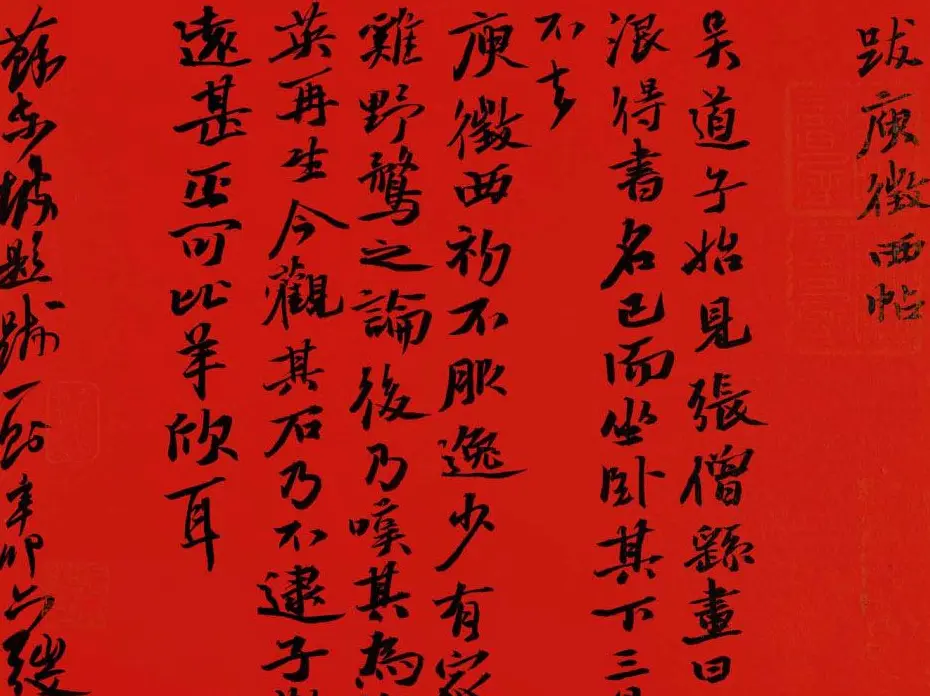 跋庾徵西帖
吳道子始見張僧繇畫曰
浪得書名已而坐卧其下三日
不去
庾徵西初不服逸少有家
雞野鶩之論後乃嘆其為
英再生今觀其石乃不逮子
遠甚正可比羊欣耳
蘇東坡題跋一則辛卯六